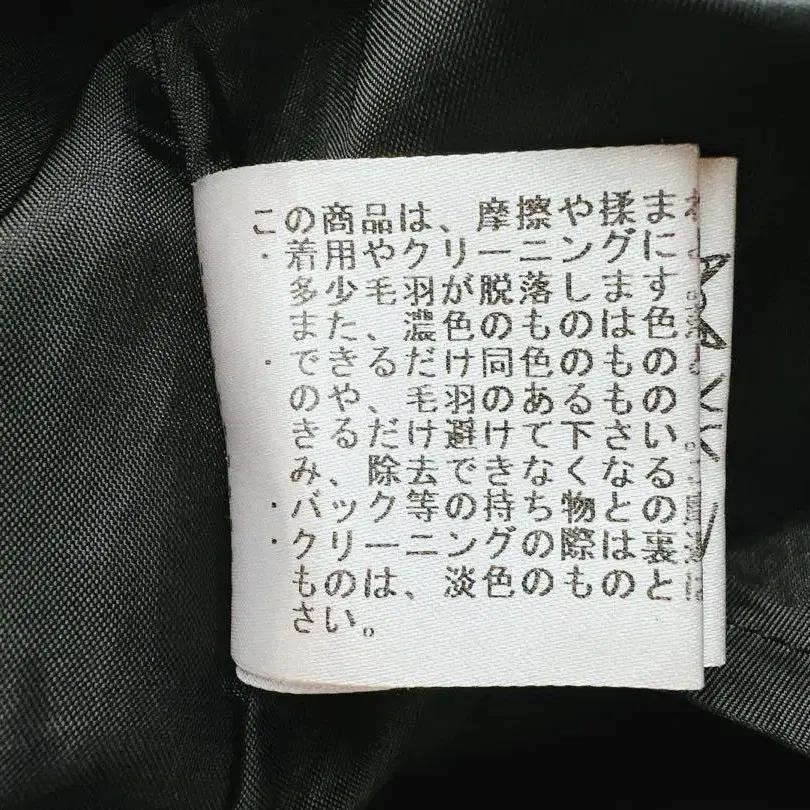 この商品は、摩擦や揉まれ
・着用やクリーニングに
多少毛羽が脱落します。
また、濃色のものは色
・できるだけ同色のもの
のや、毛羽のあるもの
きるだけ避けて下さい。
み、除去できなくなる
・バック等の持ち物との
・クリーニングの際は裏
ものは、淡色のものと
さい。